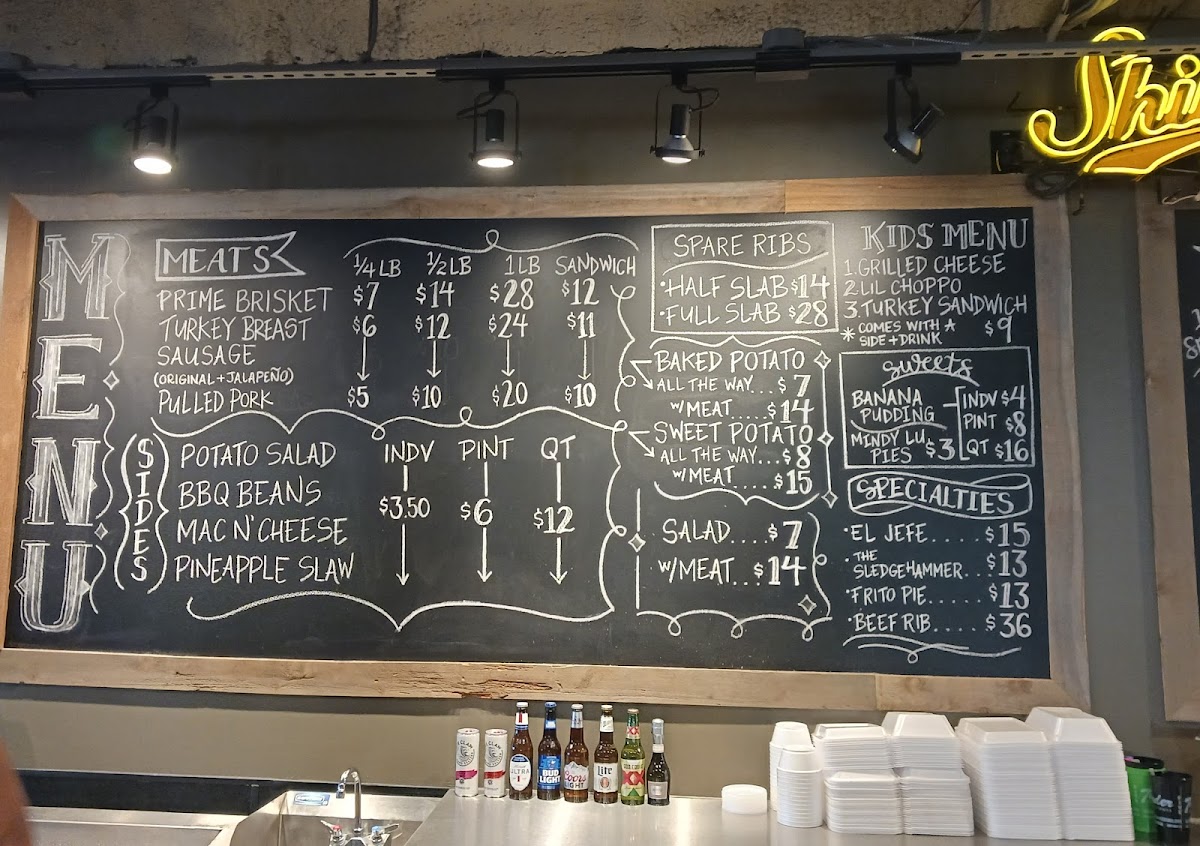 Shi
MENU
MEATS
1/4 LB 1/2 LB 1 LB SANDWICH
PRIME BRISKET $7 $14 $28 $12
TURKEY BREAST $6 $12 $24 $11
SAUSAGE
(ORIGINAL + JALAPEÑO)
PULLED PORK $5 $10 $20 $10
SIDES
INDV PINT QT
POTATO SALAD
BBQ BEANS
$3.50 $6 $12
MAC N' CHEESE
PINEAPPLE SLAW
SPARE RIBS
•HALF SLAB $14
•FULL SLAB $28
BAKED POTATO
ALL THE WAY... $7
W/ MEAT..... $14
SWEET POTATO
ALL THE WAY... $8
W/ MEAT..... $15
SALAD.... $7
W/MEAT... $14
KIDS MENU
1. GRILLED CHEESE
2. LIL CHOPPO
3. TURKEY SANDWICH
* COMES WITH A
SIDE + DRINK $9
Sweets
BANANA
PUDDING
INDV $4
PINT $8
QT $16
MINDY LU
PIES $3
SPECIALTIES
•EL JEFE..... $15
•THE
SLEDGEHAMMER... $13
•FRITO PIE...... $13
•BEEF RIB..... $36
ULTRA
BUD
LIGHT
Coors
LIGHT
Lite
XX